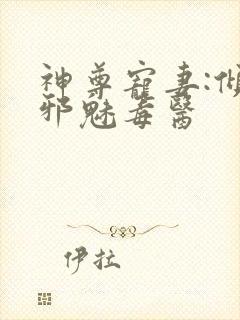 神尊寵妻:傾
邪魅毒醫
伊拉